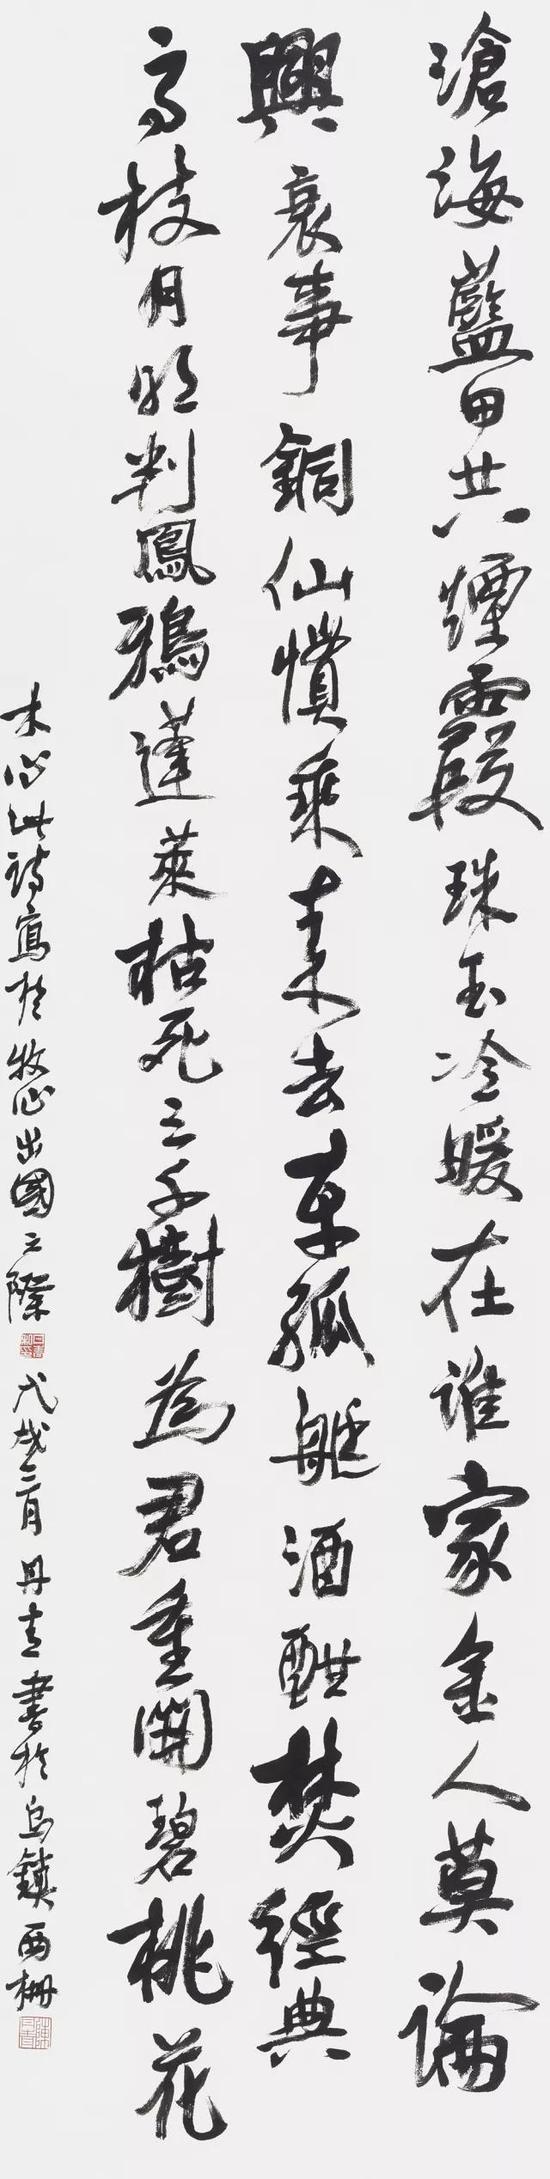 滄海藍田共煙霞珠玉冷暖在誰家金人莫論
興衰事銅仙慣乘来去車孤艇酒酣焚經典
高枝月明判鳳鴉蓬萊枯死三千樹為君重開碧桃花
木心此詩寫於牧心出國之際 戊戌三月丹青書於烏鎮西柵